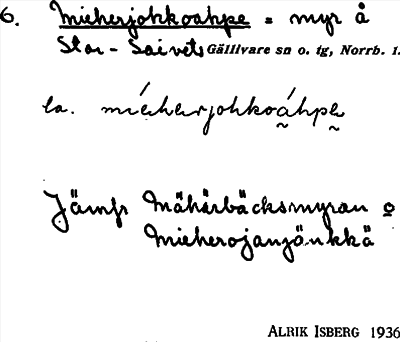 6. Mieherjohkoahpe = myr å
Stor-Saivets Gällivare sn o. tg, Norrb. l.
la. míeherjohkoáhpe̬
Jämfr Mähärbäcksmyran o
Mieherojanjänkkä
ALRIK ISBERG 1936